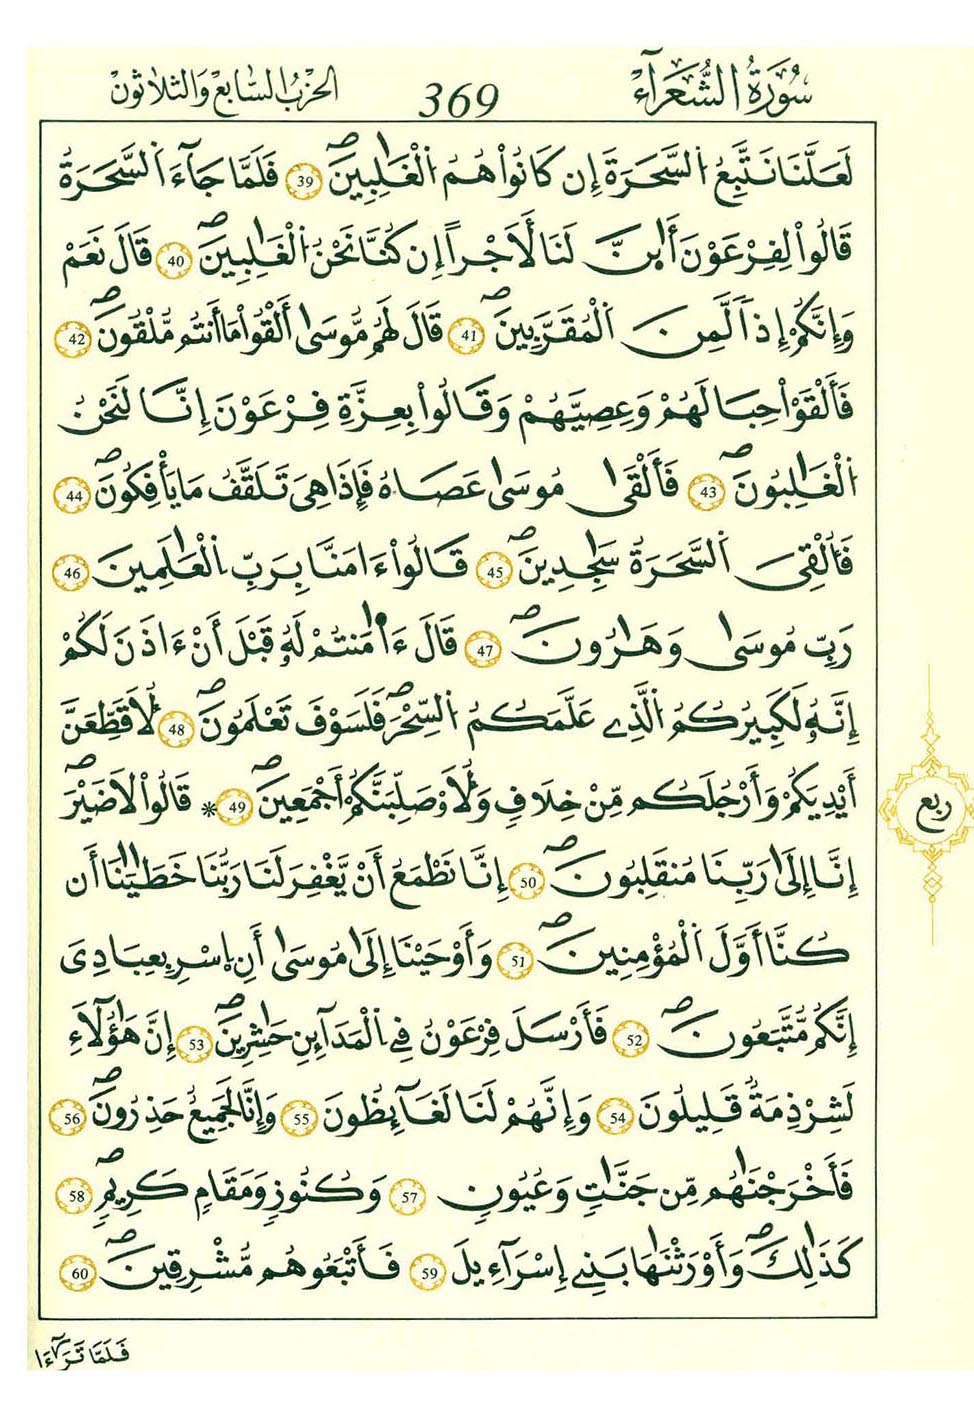 سُورَةُ الشُّعَرَآءِ 369 الحِزْبُ السَّابِعُ وَالثَّلَاثُونَ
لَعَلَّنَا نَتَّبِعُ اُ۬لسَّحَرَةَ إِن كَانُواْ هُمُ اُ۬لْغَٰلِبِينَۖ 39 فَلَمَّا جَآءَ اَ۬لسَّحَرَةُ
قَالُواْ لِفِرْعَوْنَ أَئِنَّ لَنَا لَأَجْراً إِن كُنَّا نَحْنُ اُ۬لْغَٰلِبِينَۖ 40 قَالَ نَعَمْ
وَإِنَّكُمْ إِذاٗ لَّمِنَ اَ۬لْمُقَرَّبِينَۖ 41 قَالَ لَهُم مُّوسَىٰ أَلْقُواْ مَا أَنتُم مُّلْقُونَۖ 42
فَأَلْقَوْاْ حِبَالَهُمْ وَعِصِيَّهُمْ وَقَالُواْ بِعِزَّةِ فِرْعَوْنَ إِنَّا لَنَحْنُ
اُ۬لْغَٰلِبُونَۖ 43 فَأَلْقَىٰ مُوسَىٰ عَصَاهُ فَإِذَا هِيَ تَلَقَّفُ مَا يَأْفِكُونَۖ 44
فَأُلْقِيَ اَ۬لسَّحَرَةُ سَٰجِدِينَۖ 45 قَالُواْ ءَامَنَّا بِرَبِّ اِ۬لْعَٰلَمِينَ 46
رَبِّ مُوسَىٰ وَهَٰرُونَۖ 47 قَالَ ءَاٰمَنتُمْ لَهُۥ قَبْلَ أَنْ ءَاذَنَ لَكُمْ
إِنَّهُۥ لَكَبِيرُكُمُ اُ۬لَّذِے عَلَّمَكُمُ اُ۬لسِّحْرَۖ فَلَسَوْفَ تَعْلَمُونَۖ 48 لَأُقَطِّعَنَّ
أَيْدِيَكُمْ وَأَرْجُلَكُم مِّنْ خِلَافٍ وَلَأُصَلِّبَنَّكُمْ أَجْمَعِينَۖ 49 * قَالُواْ لَا ضَيْرَۖ
إِنَّا إِلَىٰ رَبِّنَا مُنقَلِبُونَۖ 50 إِنَّا نَطْمَعُ أَنْ يَّغْفِرَ لَنَا رَبُّنَا خَطَٰيَٰنَا أَن
كُنَّا أَوَّلَ اَ۬لْمُؤْمِنِينَۖ 51 وَأَوْحَيْنَا إِلَىٰ مُوسَىٰ أَنِ اِ۪سْرِ بِعِبَادِيَ
إِنَّكُم مُّتَّبَعُونَۖ 52 فَأَرْسَلَ فِرْعَوْنُ فِے اِ۬لْمَدَآئِنِ حَٰشِرِينَۖ 53 إِنَّ هَٰؤُلَآءِ
لَشِرْذِمَةٞ قَلِيلُونَ 54 وَإِنَّهُمْ لَنَا لَغَآئِظُونَ 55 وَإِنَّا لَجَمِيعٌ حَذِرُونَۖ 56
فَأَخْرَجْنَٰهُم مِّن جَنَّٰتٍ وَعُيُونٍ 57 وَكُنُوزٍ وَمَقَامٍ كَرِيمٍۖ 58
كَذَٰلِكَۖ وَأَوْرَثْنَٰهَا بَنِے إِسْرَآءِيلَ 59 فَأَتْبَعُوهُم مُّشْرِقِينَۖ 60
ربع
فَلَمَّا تَرَٰٓءَا